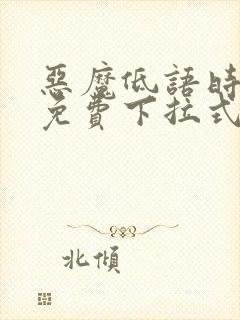 惡魔低語時
免費下拉式
北傾